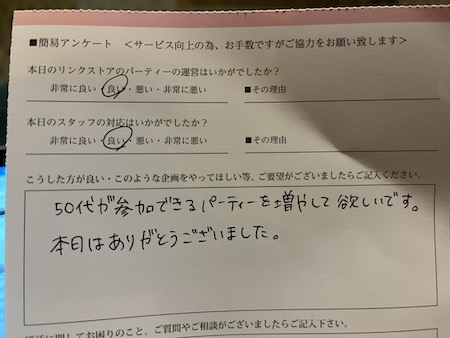 ■簡易アンケート　＜サービス向上の為、お手数ですがご協力をお願い致します＞
本日のリンクストアのパーティーの運営はいかがでしたか？
非常に良い・良い・悪い・非常に悪い　■その理由
本日のスタッフの対応はいかがでしたか？
非常に良い・良い・悪い・非常に悪い　■その理由
こうした方が良い・このような企画をやってほしい等、ご要望がございましたらご記入ください。
50代が参加できるパーティーを増やして欲しいです。
本日はありがとうございました。
に関してお困りのこと、ご質問やご相談がございましたらご記入下さい。